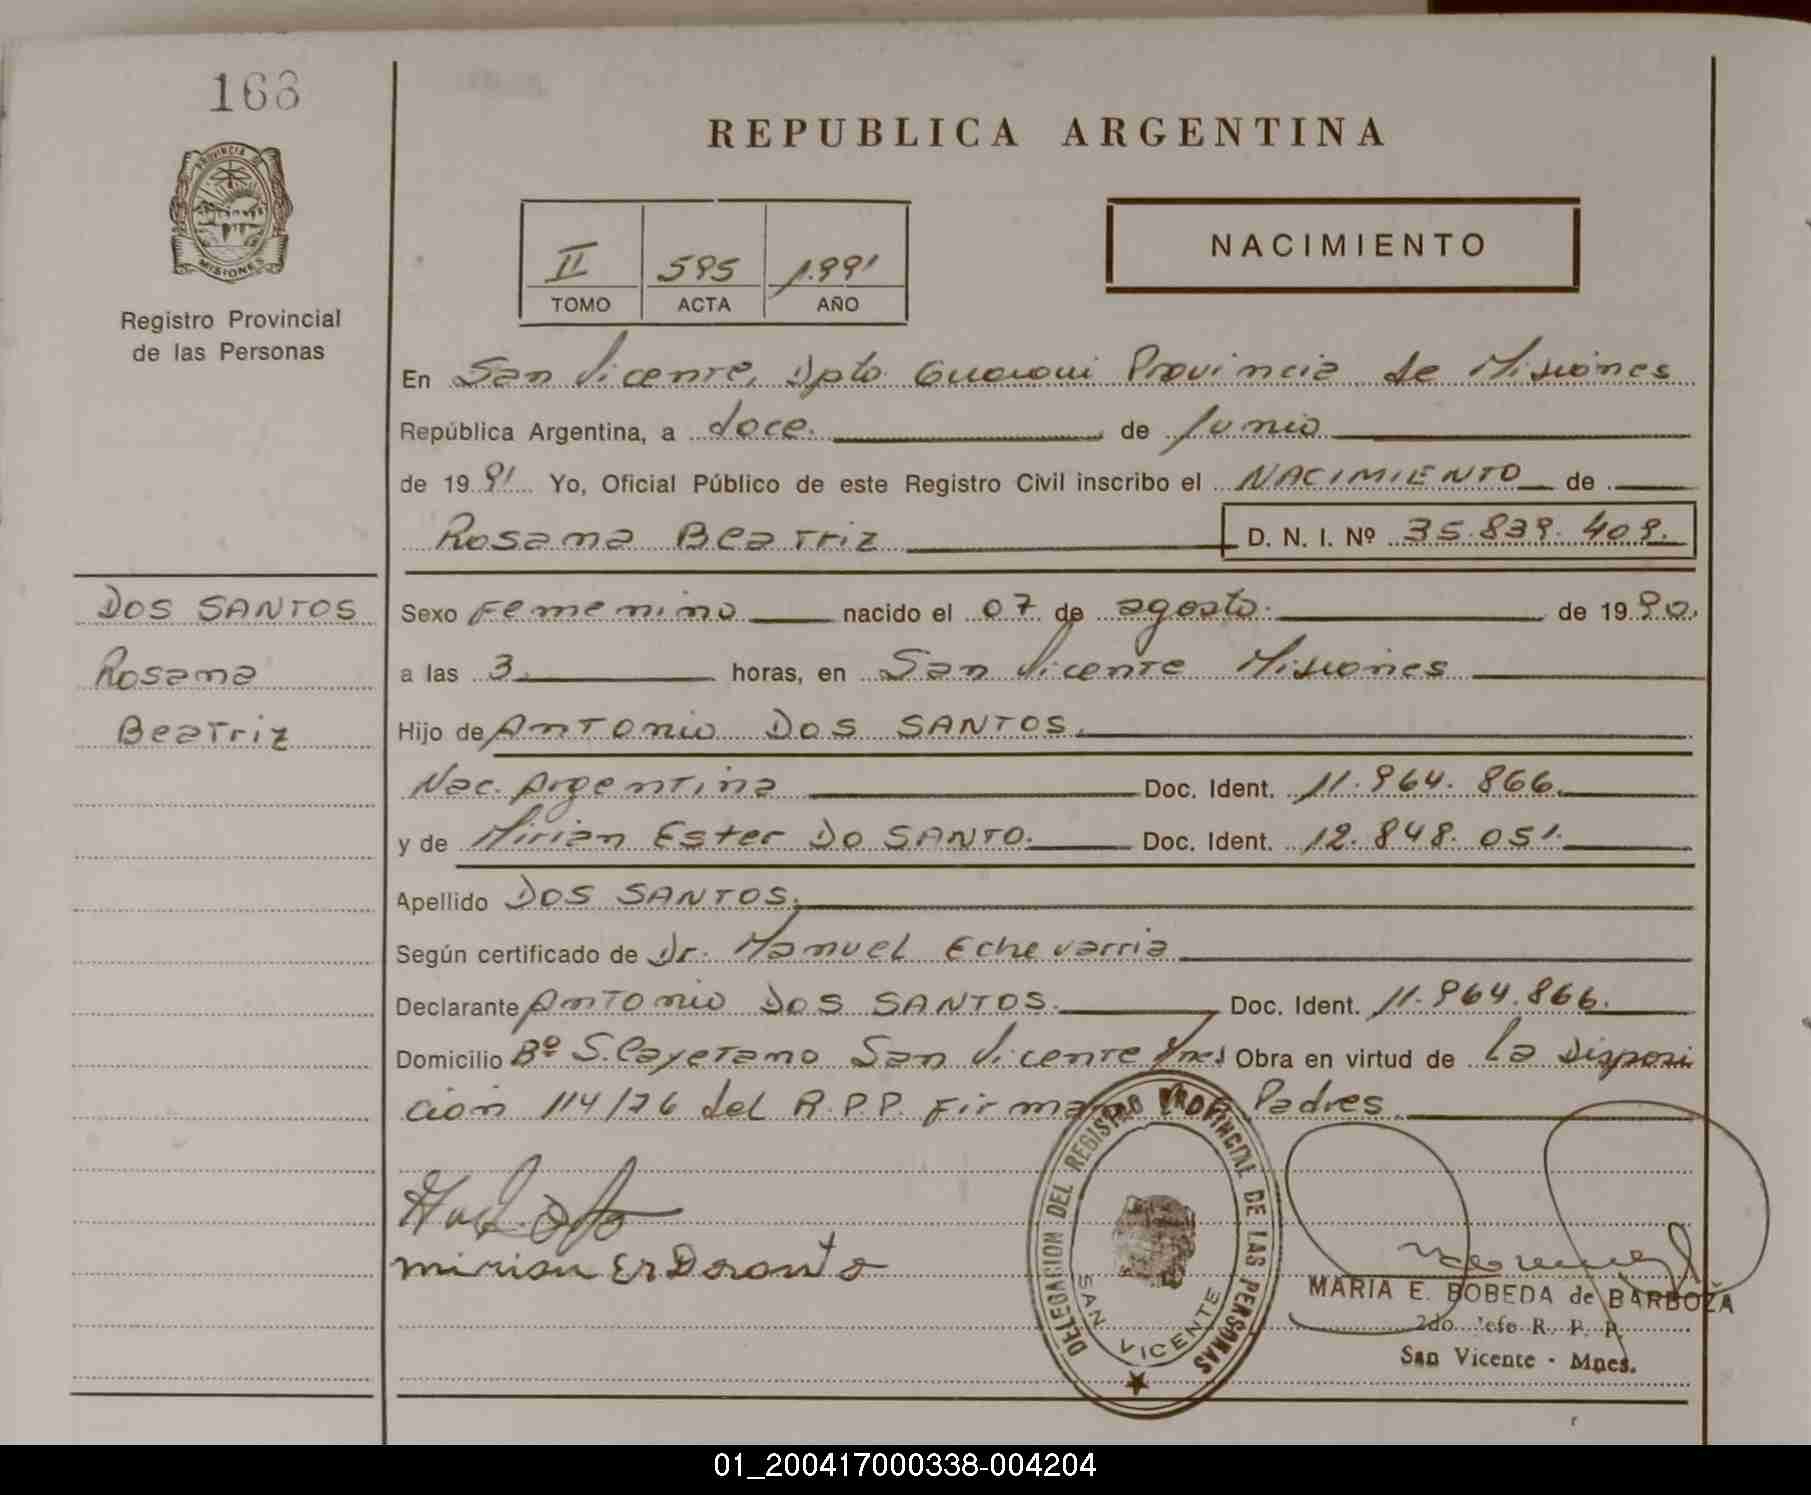 168
PROVINCIA DE
MISIONES
Registro Provincial
de las Personas
DOS SANTOS
Rosana
Beatriz
REPUBLICA ARGENTINA
II 595 1.991
TOMO ACTA AÑO
NACIMIENTO
En San Vicente, Dpto Guarani Provincia de Misiones
República Argentina, a doce. de Junio
de 1991 Yo, Oficial Público de este Registro Civil inscribo el NACIMIENTO de
Rosana Beatriz D. N. I. Nº 35.839.409.
Sexo Femenino nacido el 07 de agosto. de 1990.
a las 3 horas, en San Vicente Misiones
Hijo de Antonio DOS SANTOS.
Nac. Argentina Doc. Ident. 11.964.866.
y de Mirian Ester DO SANTO. Doc. Ident. 12.848.051.
Apellido DOS SANTOS.
Según certificado de Dr. Manuel Echevarria
Declarante Antonio DOS SANTOS. Doc. Ident. 11.964.866.
Domicilio Bº S. Cayetano San Vicente Mnes Obra en virtud de la Disposi
cion 114/76 del R.P.P. Firma Padres.
DELEGACION DEL REGISTRO PROVINCIAL DE LAS PERSONAS
SAN VICENTE
MARIA E. BOBEDA de BARBOZA
2do Jefe R. P. P.
San Vicente - Mnes.
01_200417000338-004204